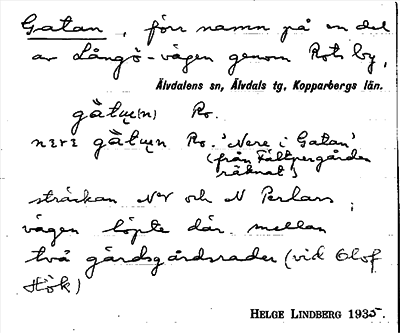 Gatan, förr namn på en del
av Långö-vägen genom Rots by,
Älvdalens sn, Älvdals tg, Kopparbergs län.
gàtu(n) Ro.
nere gàtun Ro. 'Nere i Gatan'
(från Fältpergården
räknat)
sträckan NV och N Perlars,
vägen löpte där mellan
två gärdsgårdsrader (vid Olof
Hök)
HELGE LINDBERG 1935.